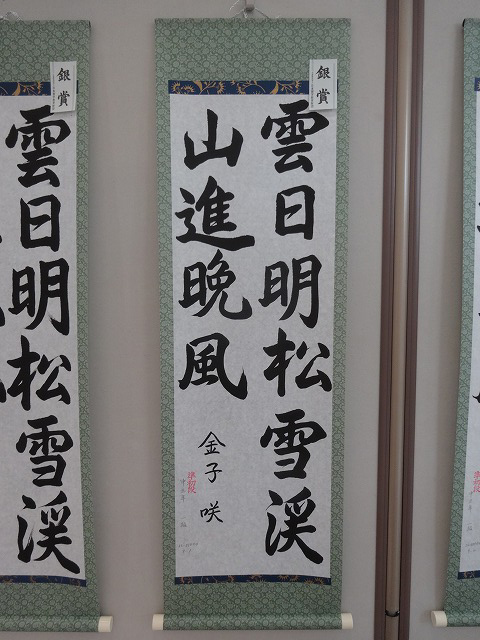 銀賞
雲日明松雪渓
山進晩風
金子咲
準初段
銀賞
雲日明松雪渓